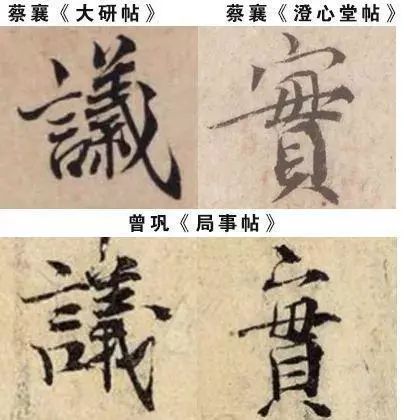 蔡襄《大研帖》 蔡襄《澄心堂帖》
議 實
曾巩《局事帖》
議 實